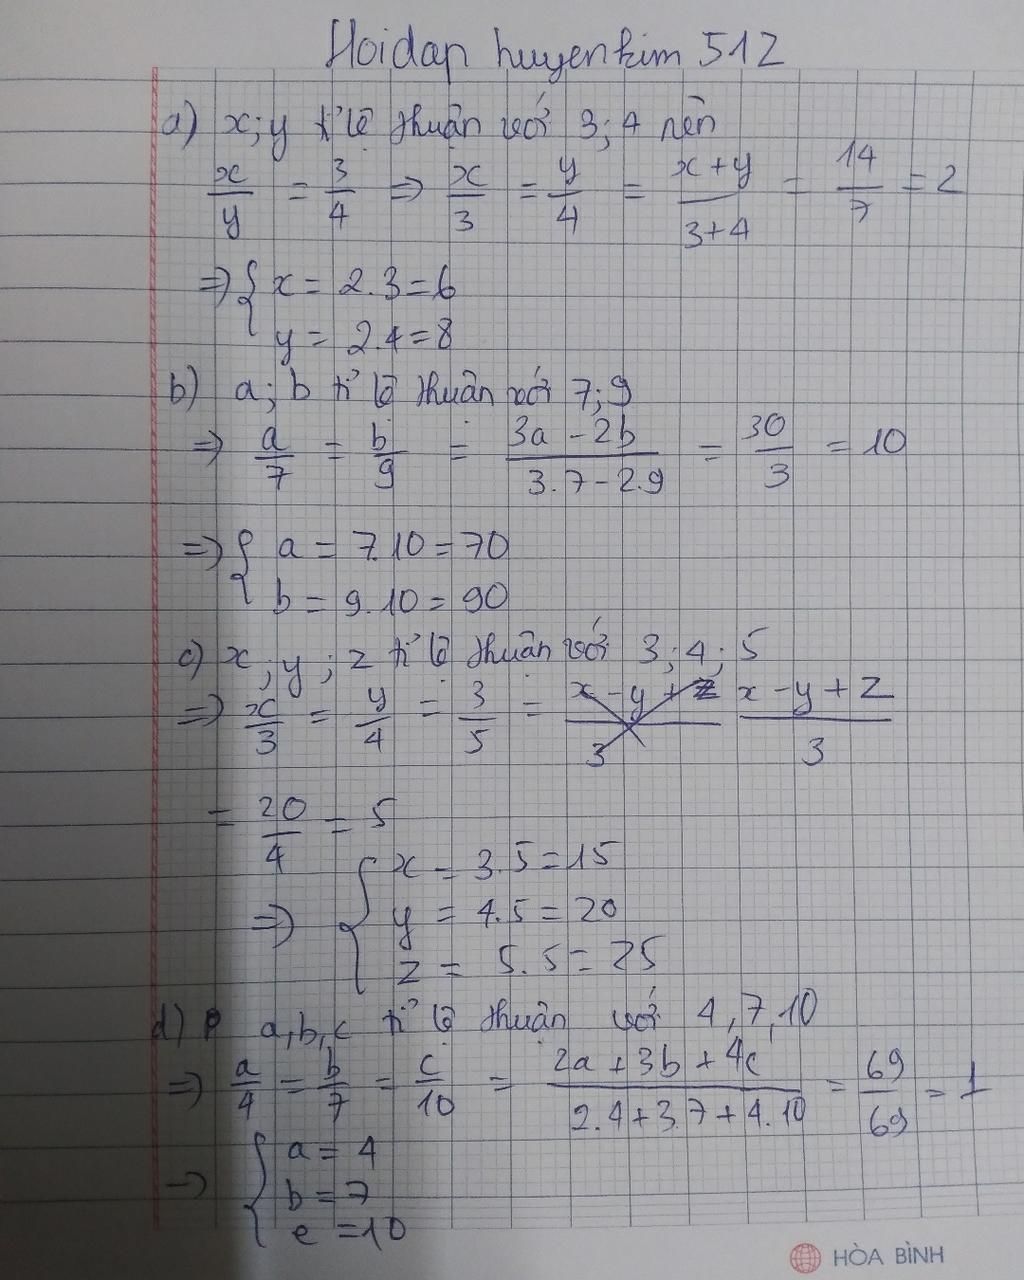 Hoidap huyenkim 512
a) x; y tỉ lệ thuận với 3; 4 nên
x/y = 3/4 => x/3 = y/4 = (x + y)/(3 + 4) = 14/7 = 2
=> { x = 2.3 = 6
y = 2.4 = 8
b) a; b tỉ lệ thuận với 7; 9
=> a/7 = b/9 = (3a - 2b)/(3.7 - 2.9) = 30/3 = 10
=> { a = 7.10 = 70
b = 9.10 = 90
c) x; y; z tỉ lệ thuận với 3; 4; 5
=> x/3 = y/4 = 3/5 = (x - y + z)/3 (x - y + z)/3
= 20/4 = 5
=> { x = 3.5 = 15
y = 4.5 = 20
z = 5.5 = 25
d) a, b, c tỉ lệ thuận với 4, 7, 10
=> a/4 = b/7 = c/10 = (2a + 3b + 4c)/(2.4 + 3.7 + 4.10) = 69/69 = 1
-> { a = 4
b = 7
c = 10
HÒA BÌNH